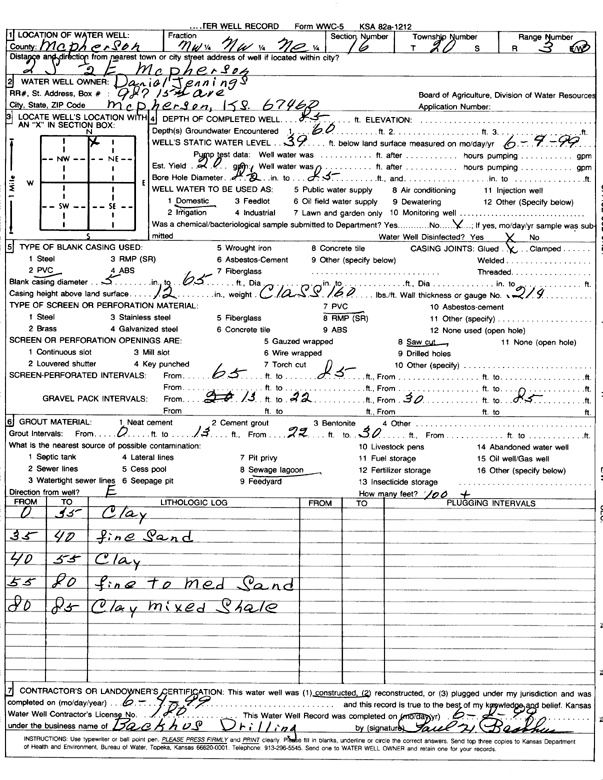 TER WELL RECORD Form WWC-5 KSA 82a-1212
1 LOCATION OF WATER WELL: Fraction Section Number Township Number Range Number
County: McPherson NW ¼ NW ¼ NE ¼ 16 T 20 S R 3 E/W
Distance and direction from nearest town or city street address of well if located within city?
2 S 2 E McPherson
2 WATER WELL OWNER: Danial Jennings
RR#, St. Address, Box # : 987 15th Ave Board of Agriculture, Division of Water Resources
City, State, ZIP Code : McPherson, KS. 67460 Application Number:
3 LOCATE WELL'S LOCATION WITH AN "X" IN SECTION BOX: 4 DEPTH OF COMPLETED WELL 85 ft. ELEVATION:
Depth(s) Groundwater Encountered 1. 60 ft. 2. ft. 3. ft.
WELL'S STATIC WATER LEVEL 39 ft. below land surface measured on mo/day/yr 6-9-99
Pump test data: Well water was ft. after hours pumping gpm
Est. Yield 20 gpm: Well water was ft. after hours pumping gpm
Bore Hole Diameter in. to 85 ft., and in. to ft.
N
X
NW NE
W E
SW SE
S
1 Mile
WELL WATER TO BE USED AS: 5 Public water supply 8 Air conditioning 11 Injection well
1 Domestic 3 Feedlot 6 Oil field water supply 9 Dewatering 12 Other (Specify below)
2 Irrigation 4 Industrial 7 Lawn and garden only 10 Monitoring well
Was a chemical/bacteriological sample submitted to Department? Yes No X; If yes, mo/day/yr sample was sub-
mitted Water Well Disinfected? Yes X No
5 TYPE OF BLANK CASING USED: 5 Wrought iron 8 Concrete tile CASING JOINTS: Glued X Clamped
1 Steel 3 RMP (SR) 6 Asbestos-Cement 9 Other (specify below) Welded
2 PVC 4 ABS 7 Fiberglass Threaded
Blank casing diameter 5 in. to 65 ft., Dia in. to ft., Dia in. to ft.
Casing height above land surface 12 in., weight Class 160 lbs./ft. Wall thickness or gauge No. .214
TYPE OF SCREEN OR PERFORATION MATERIAL: 7 PVC 10 Asbestos-cement
1 Steel 3 Stainless steel 5 Fiberglass 8 RMP (SR) 11 Other (specify)
2 Brass 4 Galvanized steel 6 Concrete tile 9 ABS 12 None used (open hole)
SCREEN OR PERFORATION OPENINGS ARE: 5 Gauzed wrapped 8 Saw cut 11 None (open hole)
1 Continuous slot 3 Mill slot 6 Wire wrapped 9 Drilled holes
2 Louvered shutter 4 Key punched 7 Torch cut 10 Other (specify)
SCREEN-PERFORATED INTERVALS: From 65 ft. to 85 ft., From ft. to ft.
From ft. to ft., From ft. to ft.
GRAVEL PACK INTERVALS: From 13 ft. to 22 ft., From 30 ft. to 85 ft.
From ft. to ft., From ft. to ft.
6 GROUT MATERIAL: 1 Neat cement 2 Cement grout 3 Bentonite 4 Other
Grout Intervals: From 0 ft. to 13 ft., From 22 ft. to 30 ft., From ft. to ft.
What is the nearest source of possible contamination: 10 Livestock pens 14 Abandoned water well
1 Septic tank 4 Lateral lines 7 Pit privy 11 Fuel storage 15 Oil well/Gas well
2 Sewer lines 5 Cess pool 8 Sewage lagoon 12 Fertilizer storage 16 Other (specify below)
3 Watertight sewer lines 6 Seepage pit 9 Feedyard 13 Insecticide storage
Direction from well? E How many feet? 100 +
FROM TO LITHOLOGIC LOG FROM TO PLUGGING INTERVALS
0 35 Clay
35 40 fine Sand
40 55 Clay
55 80 fine to med Sand
80 85 Clay mixed Shale
7 CONTRACTOR'S OR LANDOWNER'S CERTIFICATION: This water well was (1) constructed, (2) reconstructed, or (3) plugged under my jurisdiction and was
completed on (mo/day/year) 6-4-99 and this record is true to the best of my knowledge and belief. Kansas
Water Well Contractor's License No. 180 This Water Well Record was completed on (mo/day/yr)
under the business name of Backhus Drilling by (signature) Paul H Backhus
INSTRUCTIONS: Use typewriter or ball point pen. PLEASE PRESS FIRMLY and PRINT clearly. Please fill in blanks, underline or circle the correct answers. Send top three copies to Kansas Department
of Health and Environment, Bureau of Water, Topeka, Kansas 66620-0001. Telephone: 913-296-5545. Send one to WATER WELL OWNER and retain one for your records.